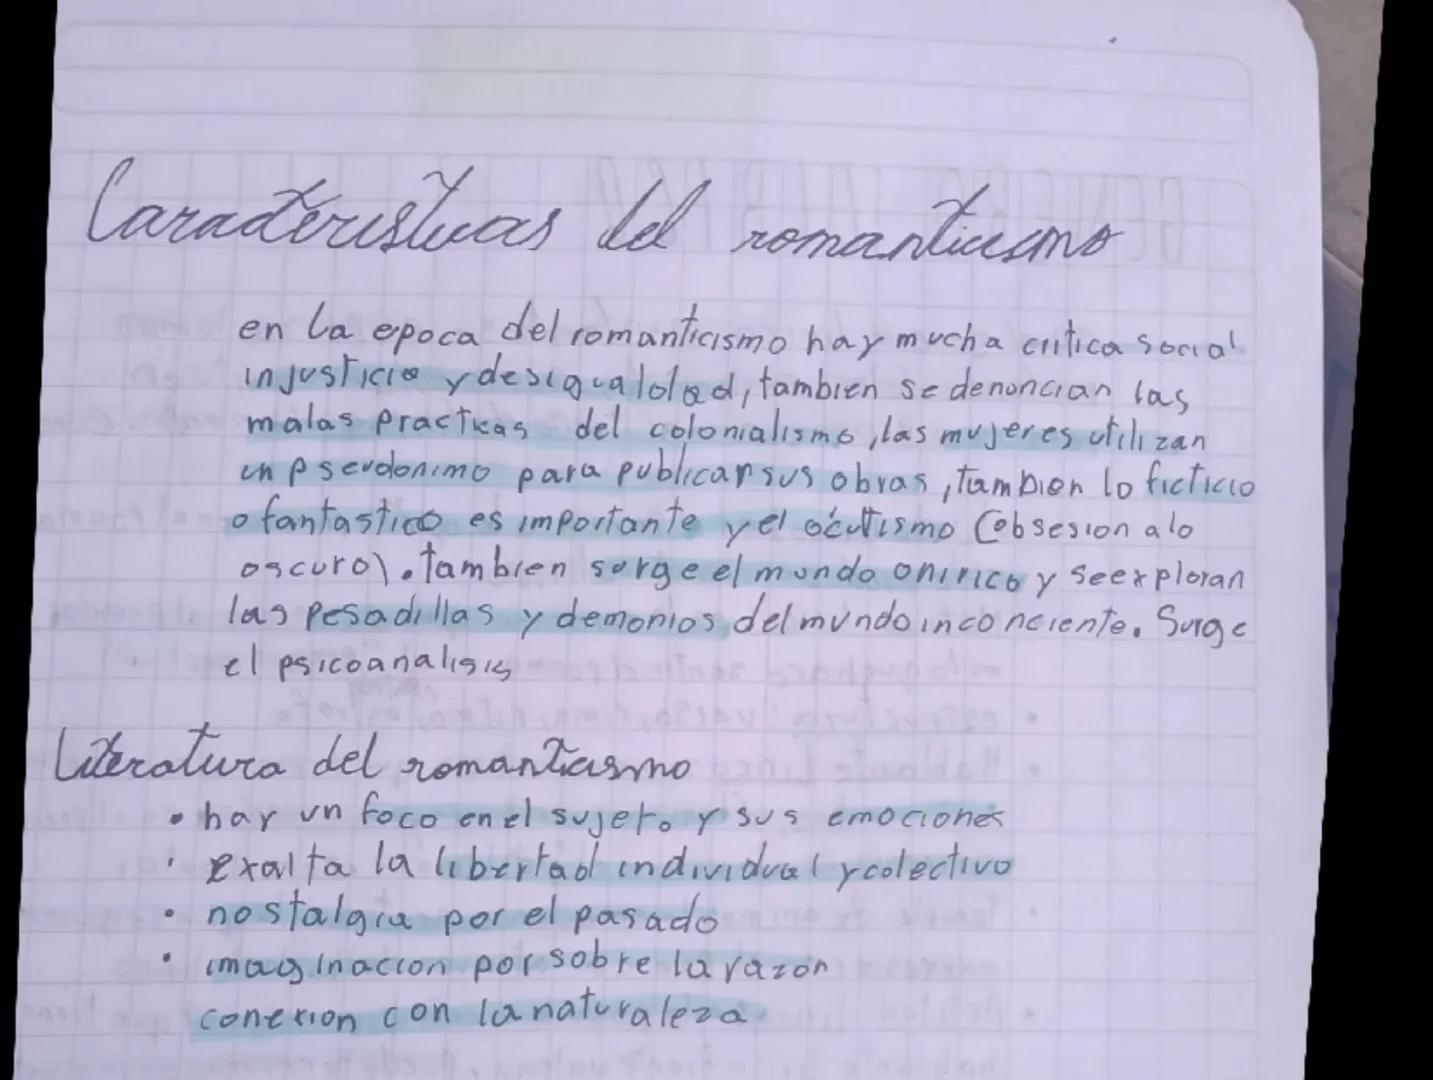 Caracteristicas del romanticismo
en la epoca del romanticismo hay mucha critica social
injusticia y desigualdad, tambien se denuncian las
malas practicas del colonialismo, las mujeres utilizan
un pseudonimo para publicar sus obras, tambien lo ficticio
o fantastico es importante y el ocultismo (obsesion a lo
oscuro). tambien surge el mundo onirico y se exploran
las pesadillas y demonios del mundo inconciente. Surge
el psicoanalisis
Literatura del romanticismo
• hay un foco en el sujeto y sus emociones
• exalta la libertad individual y colectivo
• nostalgia por el pasado
• imaginacion por sobre la razon
conexion con la naturaleza